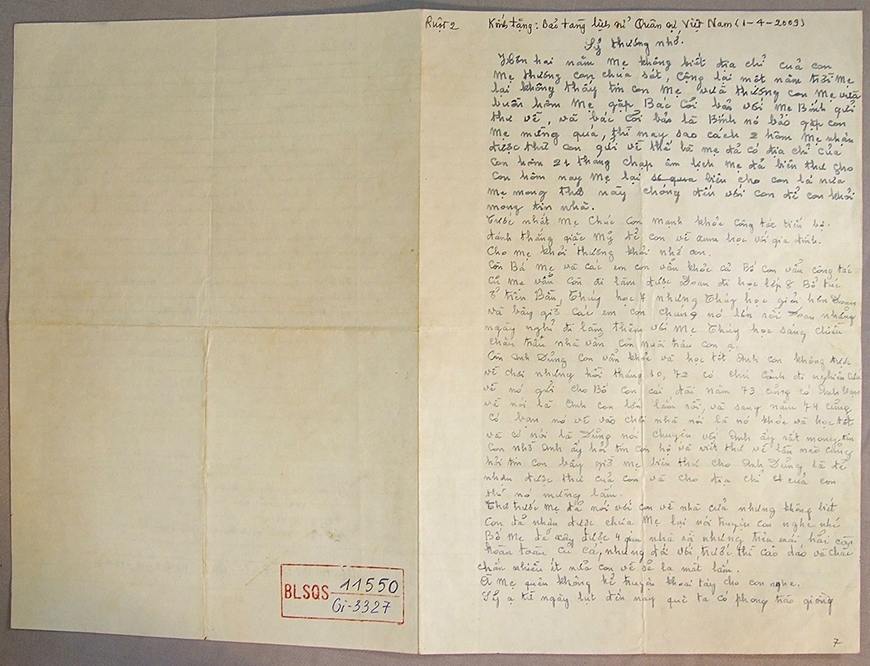 Ruột 2
Kính tặng: Bảo tàng lịch sử Quân sự Việt Nam (1-4-2009)
Sỹ thương nhớ.
Hơn hai năm Mẹ không biết địa chỉ của con
Mẹ thương con chua sát, cộng lại một năm trời Mẹ
lại không thấy tin con Mẹ vừa thương con Mẹ vừa
buồn hôm Mẹ gặp Bác Cỏi bảo với Mẹ Bính gửi
thư về, và bác Cỏi bảo là Bính nó bảo gặp con
Mẹ mừng quá, thì may sao cách 2 hôm Mẹ nhận
được thư con gửi về thế là mẹ đã có địa chỉ của
con hôm 21 tháng chạp âm lịch Mẹ đã biên thư cho
con hôm nay Mẹ lại biên cho con lá nữa
Mẹ mong thư này chóng đến với con để con khỏi
mong tin nhà.
Trước nhất Mẹ chúc con mạnh khỏe công tác tiến bộ.
đánh thắng giặc Mỹ để con về xum họp với gia đình.
Cho mẹ khỏi thương khỏi nhớ con.
Còn Bá Mẹ và các em con vẫn khỏe cả Bố con vẫn công tác
cũ mẹ vẫn còn đi làm được Đoan đi học lớp 8 Bổ túc
ở trên Bần, Thúy học 7 nhưng Thúy học giỏi hơn Đoan
và bây giờ các em con chúng nó lớn rồi Đoan những
ngày nghỉ đi làm thêm với Mẹ Thúy học sáng chiều
chăn trâu nhà vẫn còn nuôi trâu con ạ.
Còn anh Dũng con vẫn khỏe và học tốt anh con không được
về chơi nhưng hồi tháng 10, 72 có chú Cảnh đi nghiên cứu
về nó gửi cho Bố con cái đài năm 73 cũng có anh bạn
về nói là anh con lớn lắm rồi, và sang năm 74 cũng
có bạn nó về vào chơi nhà nói là nó khỏe và học tốt
và có nói là Dũng nói chuyện với anh ấy rất mong tin
con nhờ anh ấy hỏi tin con hộ và viết thư về lần nào cũng
hỏi tin con bây giờ mẹ biên thư cho anh Dũng là đã
nhận được thư của con và cho địa chỉ của con
thì nó mừng lắm.
Thư trước Mẹ đã nói với con về nhà cửa nhưng không biết
con đã nhận được chưa Mẹ lại nói truyện con nghe nhé
Bố Mẹ đã xây được 4 gian nhà rồi nhưng trên mái
hoàn toàn cũ cả, nhưng đối với trước thì cao ráo và chắc
chắn nhiều ít nữa con về là mát lắm.
À Mẹ quên không kể truyện khoai tây cho con nghe.
Sỹ ạ từ ngày lụt đến nay quê ta có phong trào giồng
7
BLSQS 11550
Gi-3327